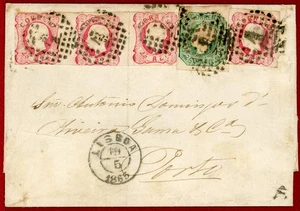 Antonio Domingos d'
Oliveira Gama & Ca
Porto
LISBOA
19
5
1865